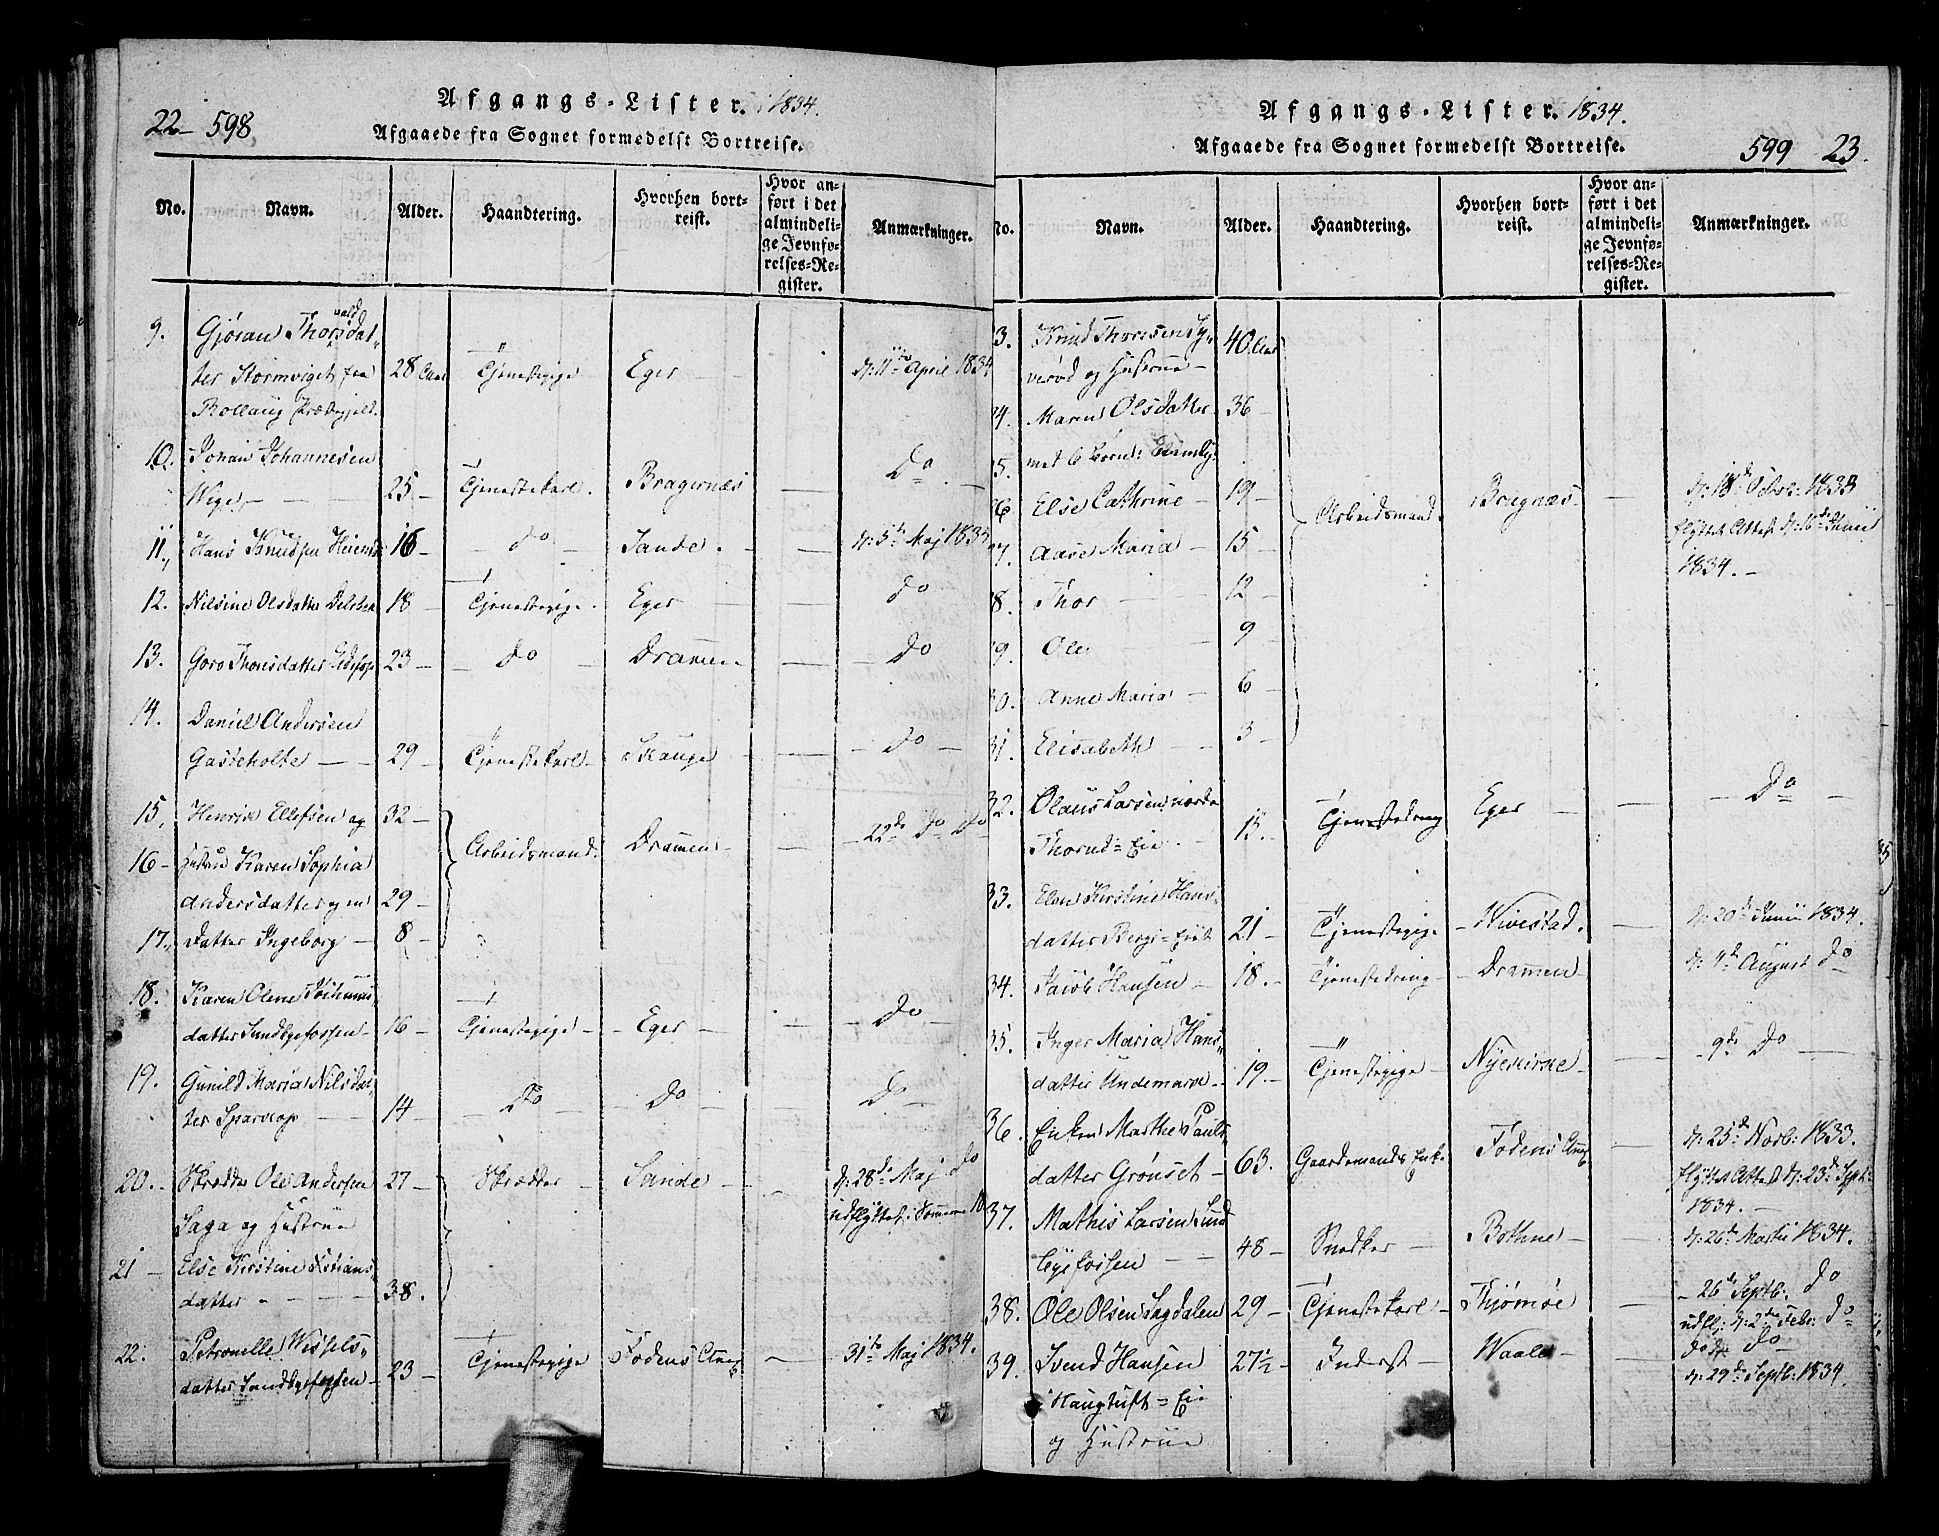 22 - 598.
Afgangs-Lister. 1834.
Afgaaede fra Sognet formedelst Bortreise.
No. Navn. Alder. Haandtering. Hvorhen bortreist. Hvor anført i det almindelige Jevnførelses-Register. Anmærkninger.
9. Gjøran Thorsdat-
ter Stormyiget fra 28 Aar Tjenestepige Eger d: 11te April 1834
Rollaug Præstegjeld.
10. Johan Johannesen
Wiger 25 - Tjenestekarl. Bragernæs - Do
11. Hans Knudsen 16 - - do - Sande. - d: 5te Maj 1834
12. Nilsine Olsdatter 18 - Tjenestepige. Eger - do
13. Goro Thorsdatter 23 - - Do - Drammen - Do
14. Daniel Andersen
Gasseholte - 29 - Tjenestekarl - Skauge - - Do -
15. Henrik Ellefsen og 32 -
Arbeidsmand. Drammen - 22de Do Do
16 - Hustrue Karen Sophia
Andersdatter og en 29 -
17. Datter Ingeborg - 8 -
18. Karen Olene
datter Sundbyefossen - 16 - Tjenestepige - - Eger - - Do -
19. Gunild Maria Nilsdat-
ter - 14 - - Do - - Do - - Do -
20. Skrædder Ole Andersen 27 - Skrædder Sande - d: 28de Maj Do
Saga og Hustrue udflyttet i Sommeren
21 - Else Kirstine Kristians-
datter - 38.
22. Petronelle Wessels-
datter Sundbyefossen - 23 - Tjenestepige Fodens Annex - 31te Maj 1834.
Afgangs-Lister. 1834.
599 23.
Afgaaede fra Sognet formedelst Bortreise.
No. Navn. Alder. Haandtering. Hvorhen bortreist. Hvor anført i det almindelige Jevnførelses-Register. Anmærkninger.
3. Knud Thoresen Sy- 40 Aar
verød og Hustrue -
4. Maren Olsdatter 36 -
5. med 6 Børn:
6 Else Cathrine - 19 - Arbeidsmand. Bragnæs - d: 18de Octbr: 1833
flyttet Attest d: 16de Junii
7. Aase Maria - 15 -
1834. -
8. Thor - 12 -
9. Ole - 9
0. Anne Maria - 6 -
1. Elisabeth - 3 -
32. Olaus Larsen nordre
Thorud = Eie. - 15. - Tjenestedreng Eger - - Do -
33. Elen Kirstine Hans-
datter Bergs = 21 - Tjenestepige - Wivestad. - d: 20de Junii 1834.
34. Jacob Hansen - 18. - Tjenestedreng - Drammen - d: 4de August Do
35. Inger Maria Hans-
datter Undemark - 19. - Tjenestepige - Nyekirke - - 9de Do -
36. Enken Marthe Pauls-
datter Grønset - 63. Gaardmands Enke Fodens Annex - d: 25de Novb: 1833.
flyttet Attest d: 23de Septb:
1834. -
37. Mathis Larsen Sund
byefossen - 48 - Snedker - Bothne - d: 26de Martii 1834.
38. Ole Olsen Sagdalen 29 - Tjenestekarl - Thjømøe - - 26de Septb: Do
udfl: d: 2den Febr: Do
39. Svend Hansen 27½ - Inderst - Waale - do Do
d: 29de Septb: 1834.
Haugtuft = Eie
og Hustrue